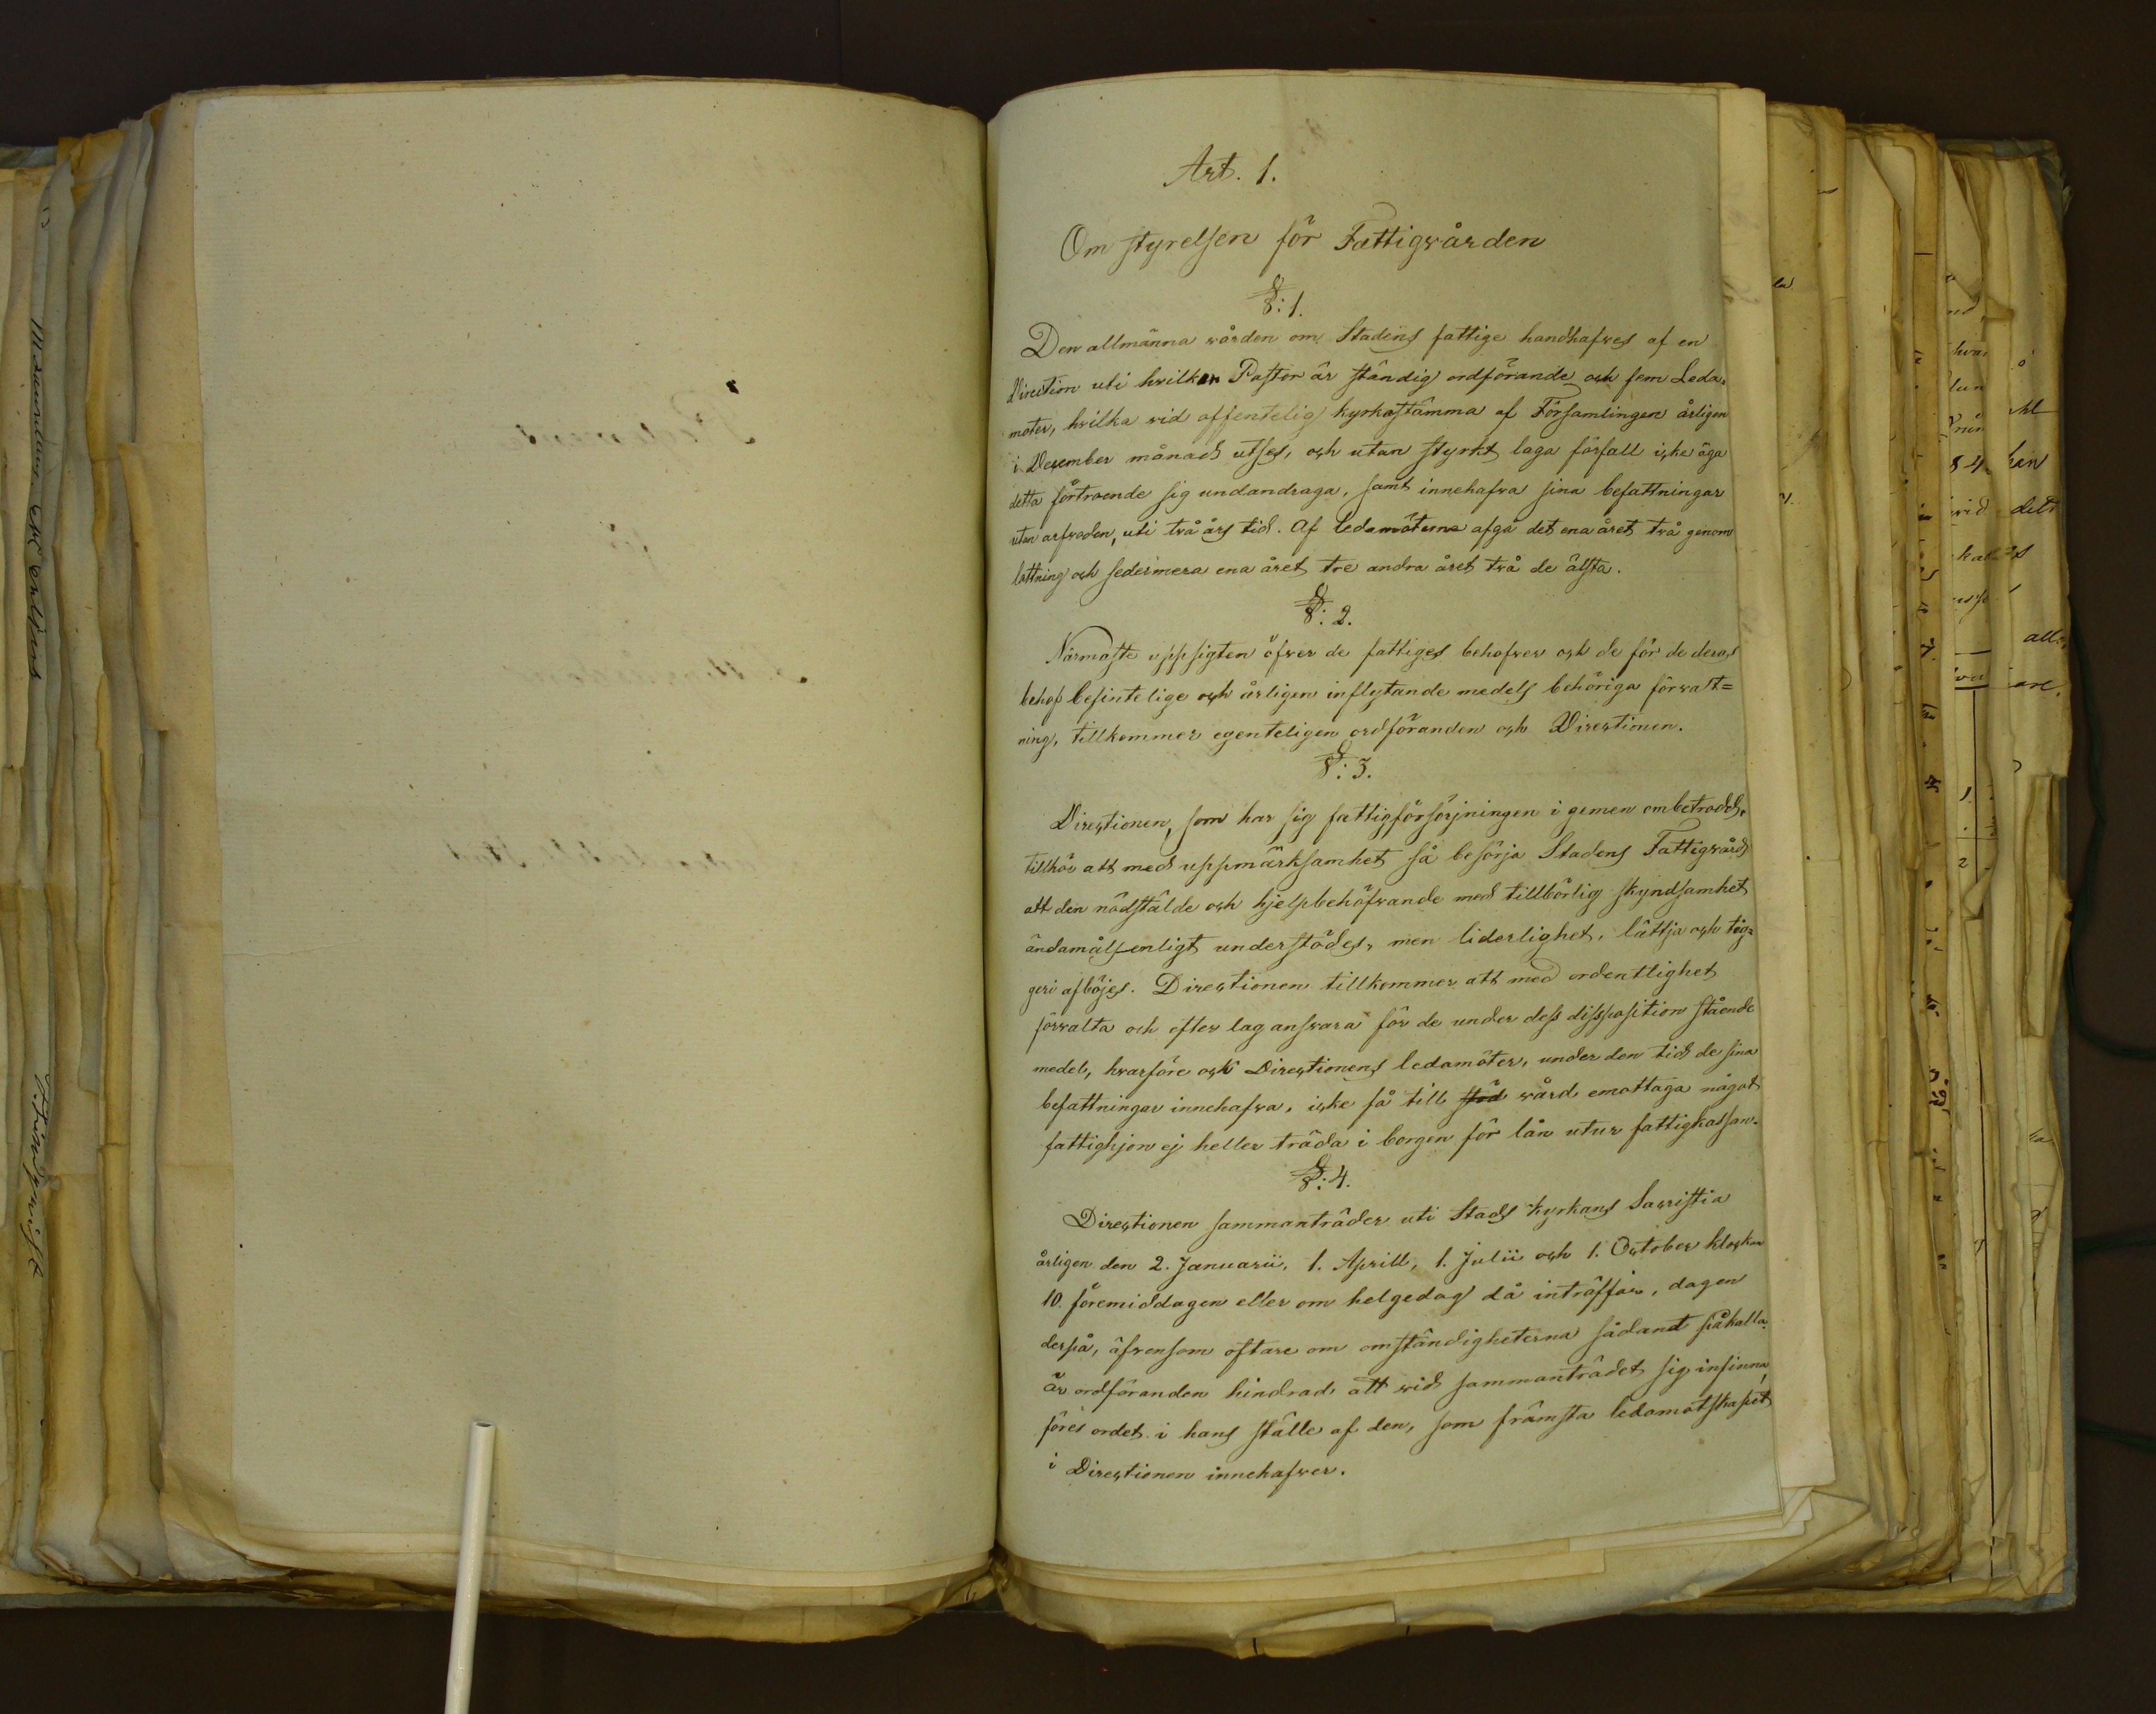 Art. 1.
Om styrelsen för Fattigvården
§: 1.
Den allmänna vården om Stadens fattige handhafves af en
Direction uti hvilken Pastor är ständig ordförande och fem Leda-
moter, hvilka vid offentelig kyrkastämma af Församlingen årligen
i December månad utses, och utan styrkt laga förfall icke äga
detta förtroende sig undandraga, samt innehafva sina befattningar
utan arfvoden, uti två års tid. Af Ledamöterne afgå det ena året två genom
lottning och sedermera ena året tre andra året två de älsta.
§: 2.
Närmaste uppsigten öfver de fattiges behofver och de för de deras
behof befintelige och årligen inflytande medels behöriga förvalt=
ning, tillkommer egenteligen ordföranden och Directionen.
§: 3.
Directionen, som har sig fattigförsörjningen i gemen ombetrodd,
tillhör att med uppmärksamhet så besörja Stadens Fattigvård
att den nödstälde och hjelpbehöfvande med tillbörlig skyndsamhet
ändamålsenligt understödes, men liderlighet, lättja och tig=
geri afböjes. Directionen tillkommer att med ordentlighet
förvalta och efter lag ansvara för de under dess disposition stående
medel, hvarföre ock Directionens ledamöter, under den tid de sina
befattningar innehafva, icke få till stöd vård emottaga något
fattighjon ej heller träda i borgen för lån utur fattigkassan.
§: 4.
Directionen sammanträder uti Stads kyrkans Sacristia
årligen den 2. Januarii, 1. Aprill, 1. Julii och 1. October klockan
10. föremiddagen eller om helgedag då inträffar, dagen
derpå, äfvensom oftare om omständigheterna sådant påkalla.
är ordföranden hindrad att vid sammanträdet sig infinna,
föres ordet i hans ställe af den, som främsta ledamotskapet
i Directionen innehafver.